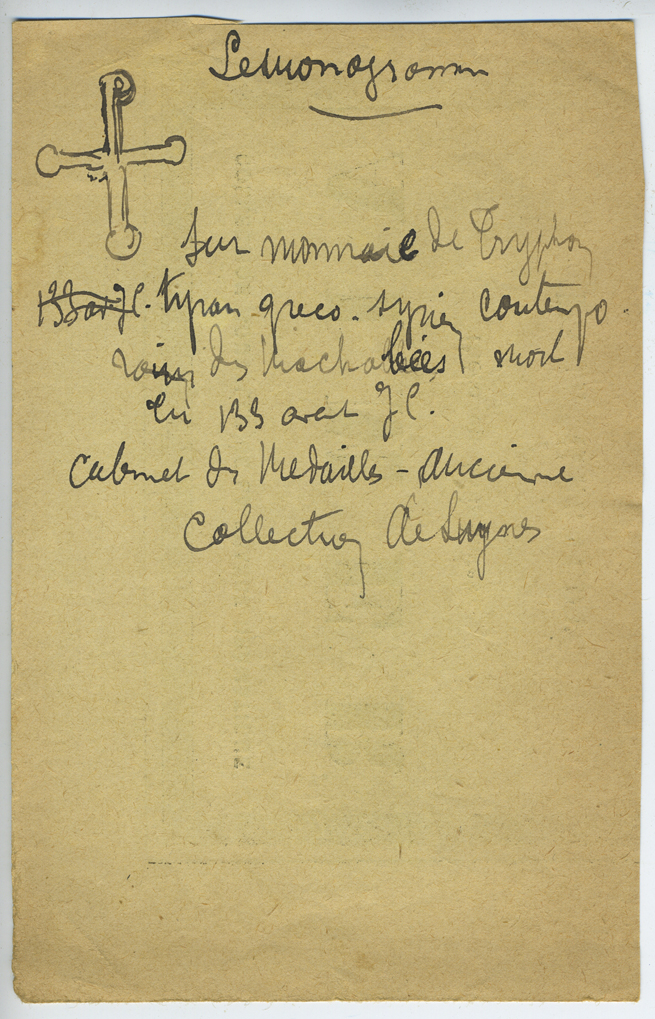 Le monogramme
sur monnaie de Tryphon
133 av JC. tyran greco-syrien contempo-
rain des Machabées mort
en 133 avant JC.
Cabinet des Medailles - ancienne
Collection de Luynes